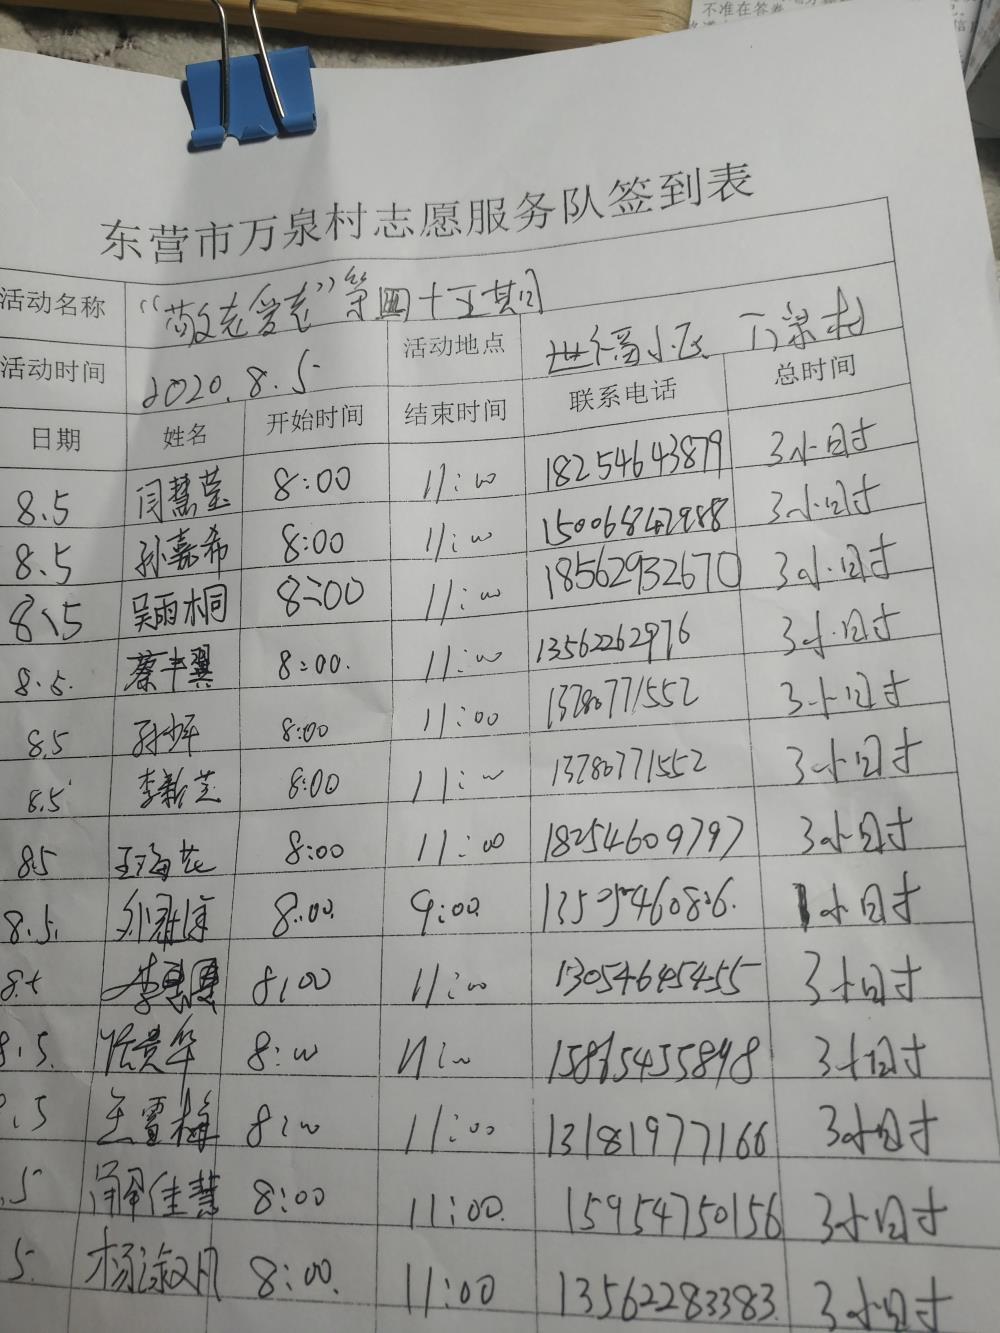 不准在答卷
东营市万泉村志愿服务队签到表
活动名称 “敬老爱老”第四十五期
活动时间 2020.8.5 活动地点 世福小区 万泉村
日期 姓名 开始时间 结束时间 联系电话 总时间
8.5 闫慧莹 8:00 11:00 18254643879 3小时
8.5 孙嘉希 8:00 11:00 3小时
8.5 吴雨桐 8:00 11:00 18562932670 3小时
8.5. 蔡丰翼 8:00. 11:00 13562262976 3小时
8.5 8:00 11:00 13780771552 3小时
8.5 李新芝 8:00 11:00 13780771552 3小时
8.5 王海花 8:00 11:00 18254609797 3小时
8.5. 8:00. 9:00. 1小时
8.5 8:00 11:00 13054645455 3小时
8.5. 张贵华 8:00 11:00 3小时
.5 王雪梅 8:00 11:00 13181977166 3小时
.5 解佳慧 8:00 11:00. 15954750156 3小时
5. 杨淑月 8:00. 11:00 13562283383. 3小时